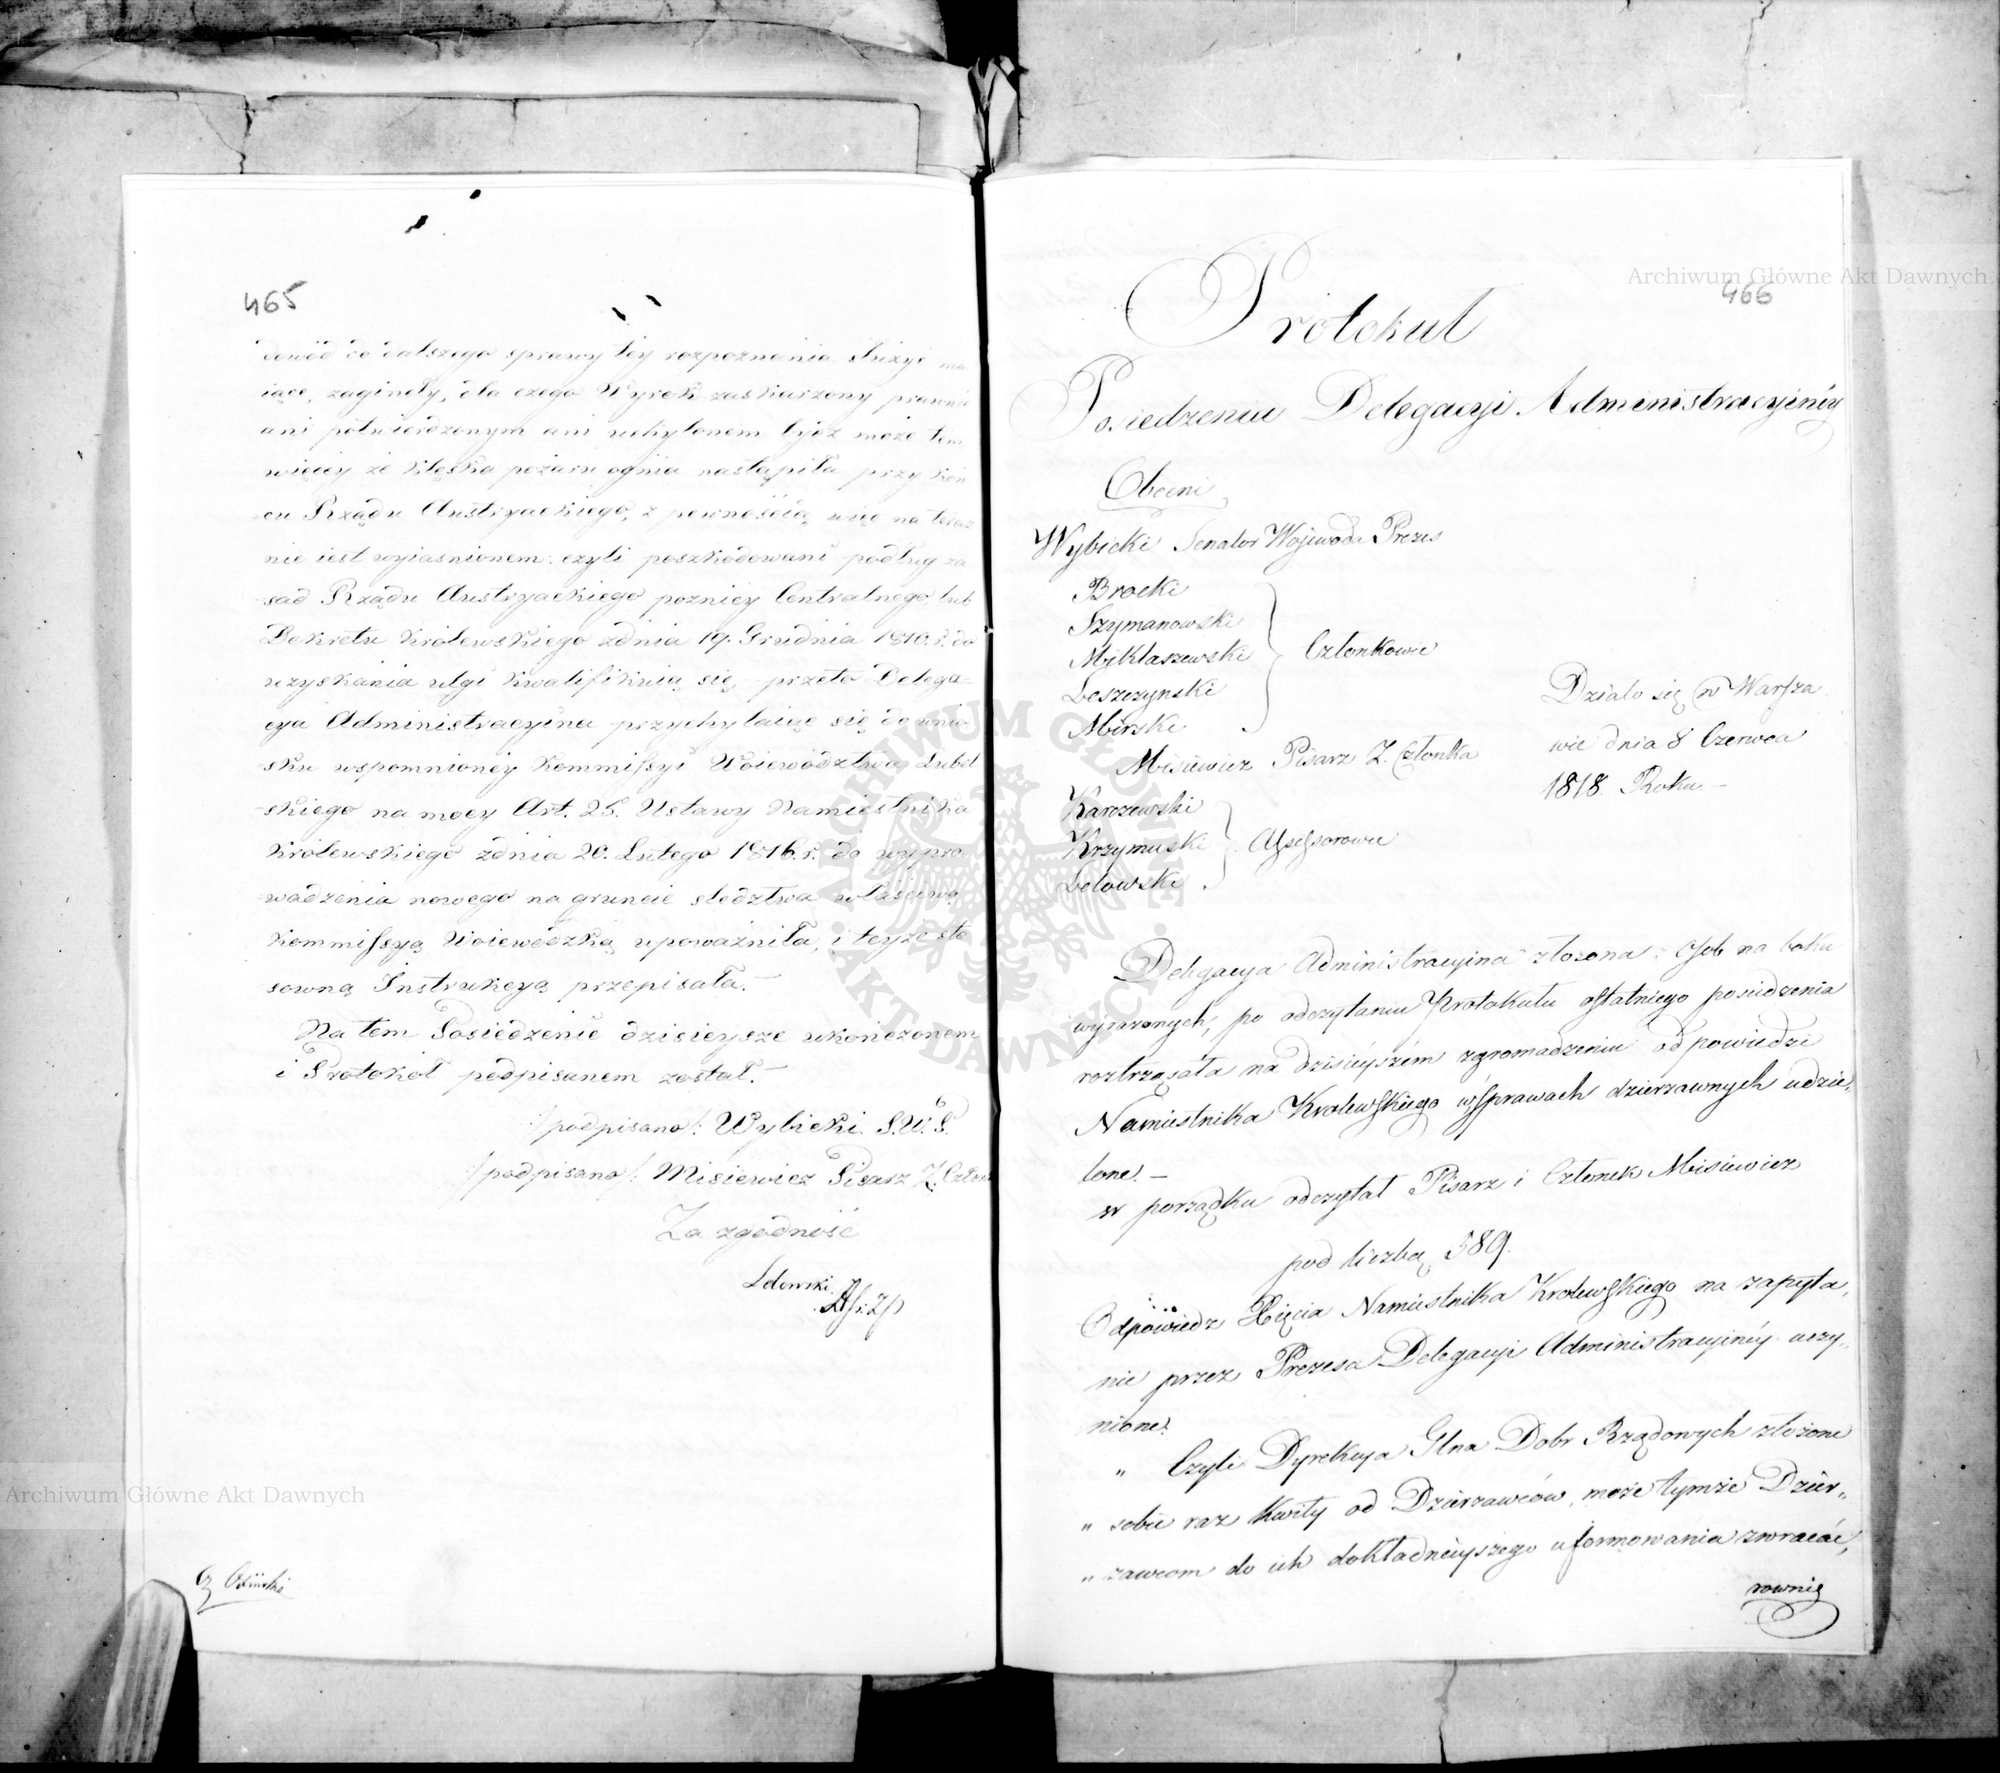 465
dowód do dalszego sprawy tey rozpoznania służyć ma
iące, zaginęły, dla czego Wyrok zaskarzony prawnie
ani potwierdzonym ani uchylonem bydź może tem
więcey że klęska pożaru ognia nastąpiła przy koń
cu Rządu Austryackiego, z pewnością więc na teraz
nie iest wyiasnionem czyli poszkodowani podług za
sad Rządu Austryackiego pozniey Centralnego lub
Dekretu Królewskiego zdnia 19. Grudnia 1810. r. do
uzyskania ulgi kwalifikuią się – przeto Delega-
cya Administracyina przychylaiąc się do wnio
sku wspomnioney Kommissyi Woiewództwa Lubel
-skiego na mocy Art. 25. Ustawy Namiestnika
Królewskiego zdnia 20. Lutego 1816. r. do wypro
wadzenia nowego na gruncie sledztwa właściwą
Kommissyą Woiewódzką upoważniła, i teyże sto
sowną Instrukcyą przepisała. –
Na tem Posiedzenie dzisieysze ukończonem
i Protokół podpisanem został. –
/podpisano/: Wybicki. S. W. P.
/podpisano/: Misiewicz Pisarz Z. Człon
Za zgodność
Lelowski
Archiwum Główne Akt Dawnych
Archiwum Główne Akt Dawnych
466
Protokuł
Posiedzenia Delegacyi Administracyiney
Obecni
Wybicki Senator Wojewoda Prezes
Brocki
Szymanowski
Miklaszewski
Członkowie
Leszczynski
Mirski
Misiewicz Pisarz Z. Członka
Działo się w Warsza
wie dnia 8 Czerwca
1818 Roku –
Karczewski
Krzymuski
Assessorowie
Lelowski
Delegacya Administracyina złozona z Osob na boku
wyrazonych, po odczytaniu Protokułu ostatniego posiedzenia
roztrząsała na dzisieyszem zgromadzeniu odpowiedzi
Namiestnika Krolewskiego w sprawach dzierzawnych udzie„
lone. –
w porządku odczytał Pisarz i Członek Misiewicz
pod liczbą 589.
Odpowiedz Xięcia Namiestnika Krolewskiego na zapyta„
nie przez Prezesa Delegacyi Administracyiney uczy„
nione.
„ Czyli Dyrekcya Glna Dobr Rządowych złożone
„ sobie raz kwity od Dzierzawców, może tymże Dzier„
„ zawcom do ich dokładnieyszego uformowania zwracać,
rownie
ARCHIWUM GŁÓWNE
AKT DAWNYCH